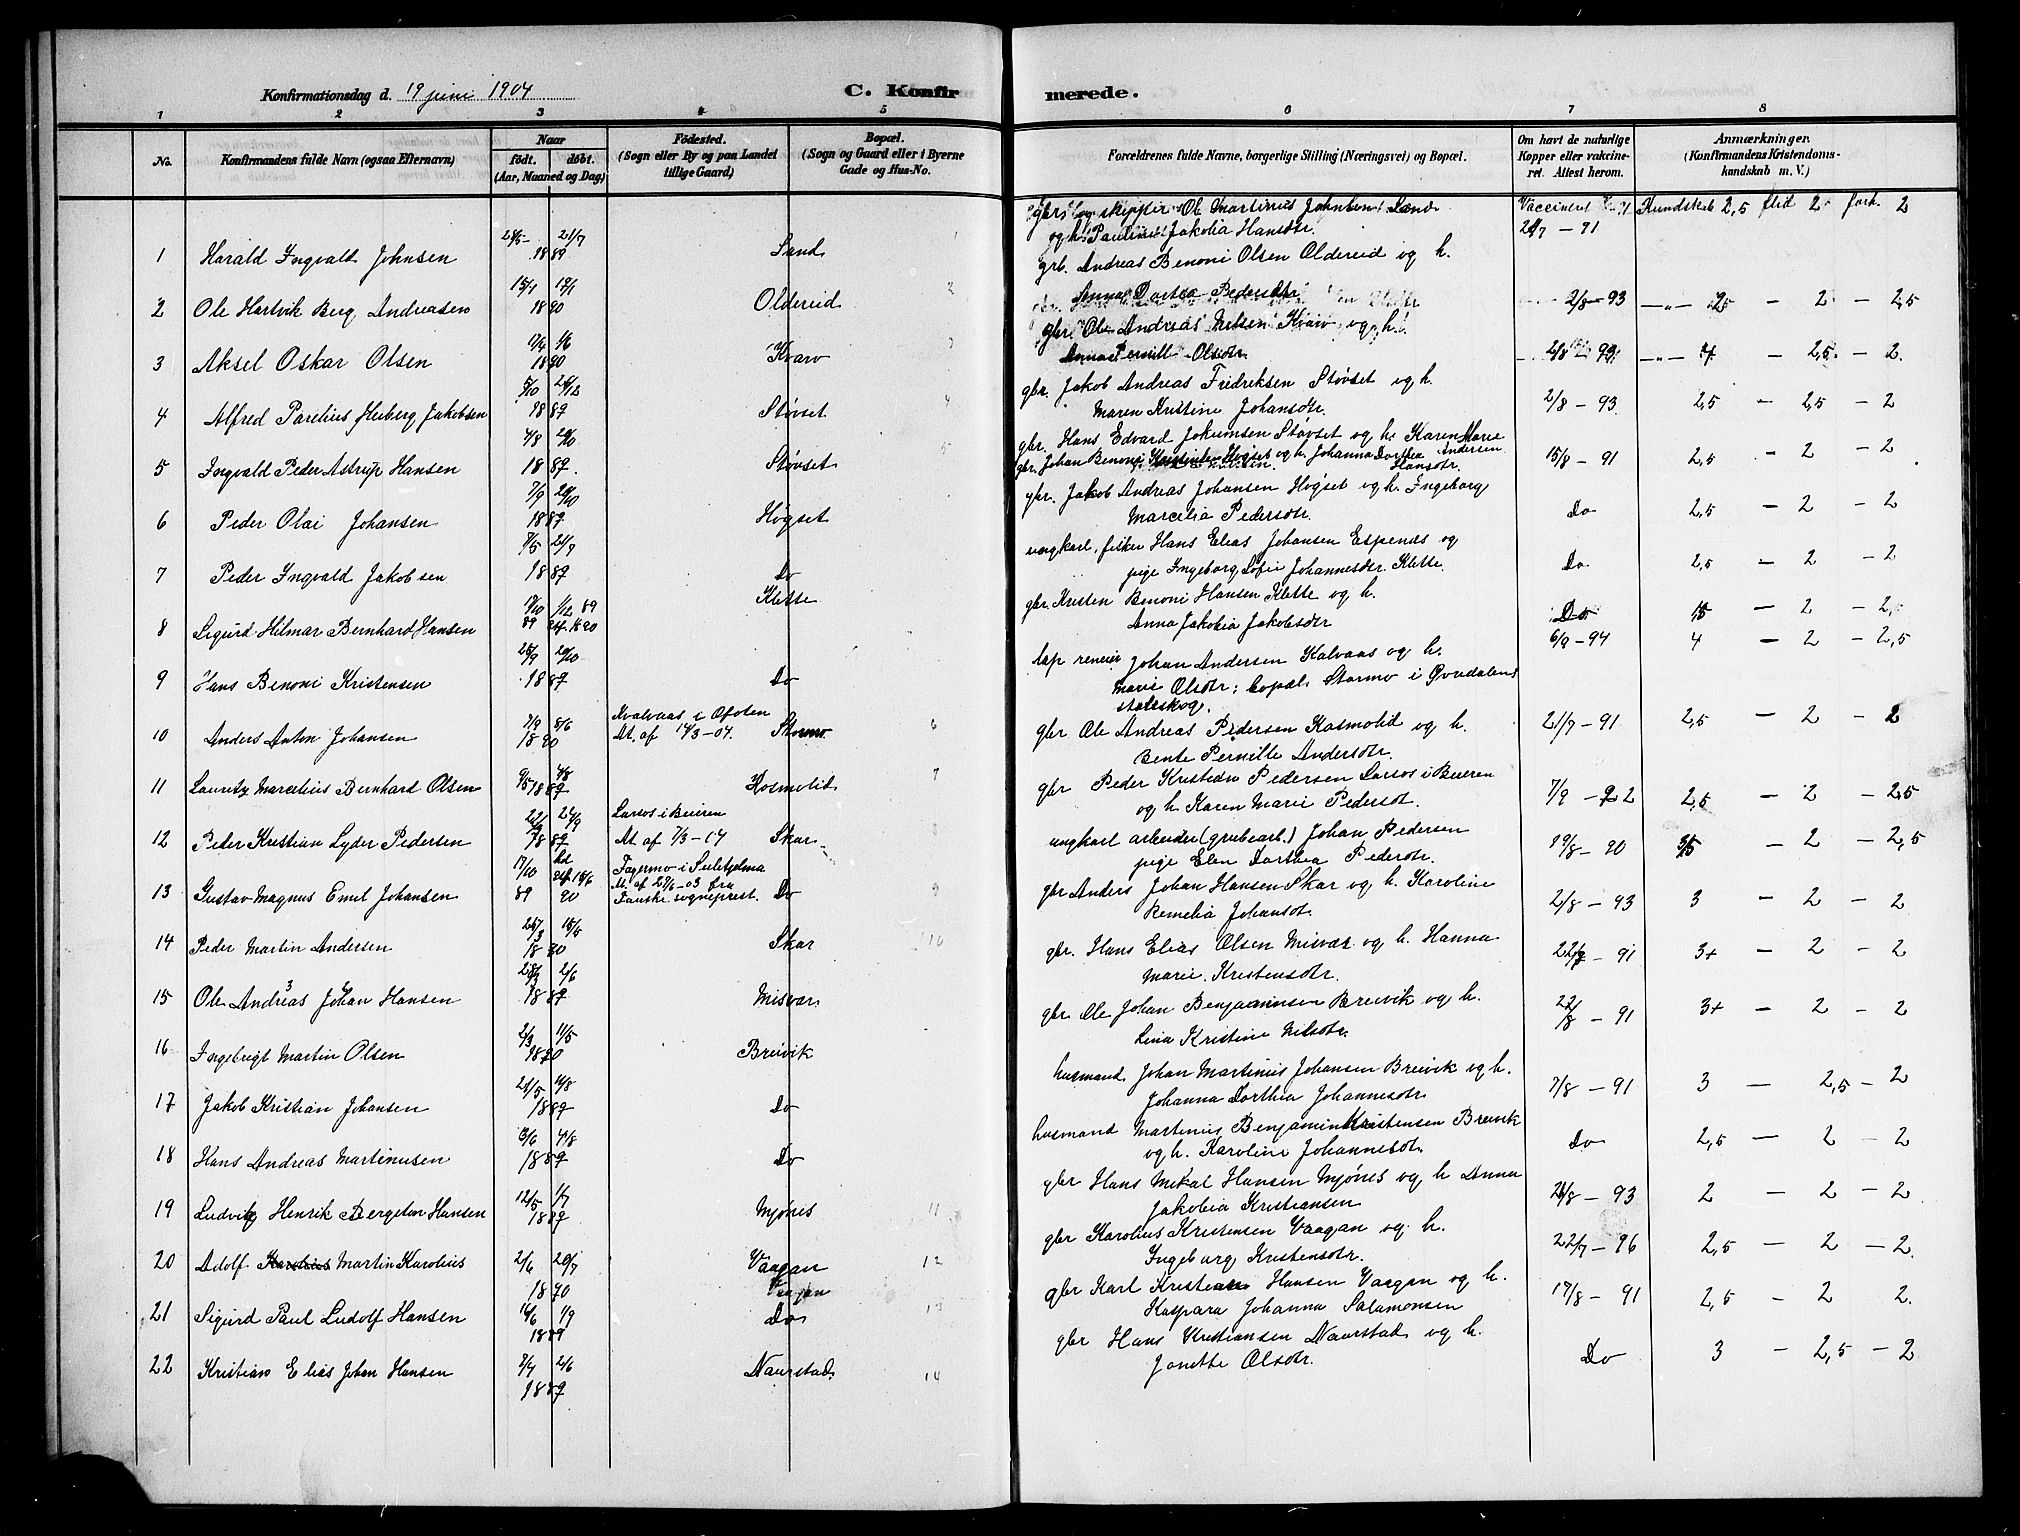 Konfirmationsdag d. 19 juni 1904
C. Konfirmerede.
1 2 3 4 5 6 7 8
No.
Konfirmandens fulde Navn (ogsaa Efternavn)
Naar
födt. döbt.
(Aar, Maaned og Dag)
Födested.
(Sogn eller By og paa Landet
tillige Gaard)
Bopæl.
(Sogn og Gaard eller i Byerne
Gade og Hus-No.
Forældrenes fulde Navne, borgerlige Stilling (Næringsvei) og Bopæl.
Om havt de naturlige
Kopper eller vakcine-
ret. Attest herom.
Anmærkninger.
(Konfirmandens Kristendoms-
kundskab m. V.)
gbr. og skipper Ole Martinus Johnsen Sand
og h. Pauline Jakobia Hansdtr. 21/7 – 91 Kundskab 2,5 flid 2 forh. 2
1 Harald Ingvald Johnsen 21/7 1889 Sand 1
grb. Andreas Benoni Olsen Oldereid og h.
Anna Dortea Pedersdtr.
2 Ole Hartvik Berg Andreasen 15/1 1890 Oldereid 2 2/8 – 93 – „ – 2,5 – 2 – 2,5
gbr. Ole Andreas Nilsen Kvarv og h.
Anna Pernill Olsdtr.
3 Aksel Oskar Olsen 1/6 1890 Kvarv 3 2/8 – 93 – „ – 4 – 2,5 – 2.
gbr. Jakob Andreas Fridriksen Støvset og h.
Maren Kristine Johansdtr.
4 Alfred Parelius Heiberg Jakobsen 5/10 26/12 1889 Støvset 4 2/8 – 93. 2,5 – 2,5 – 2
gbr. Hans Edvard Jokumsen Støvset og h. Karen Marie Andersen
5 Ingvald Peder Astrup Hansen 4/8 20/10 1889. Støvset 5 15/8 – 91 2,5 – 2 – 2
gbr. Johan Benoni Kristensen Høgset og h. Johanna Dorthea Hansdtr.
6 Peder Olai Johansen 7/9 20/10 1889 Høgset Do 2,5 – 2 – 2
gbr. Jakob Andreas Johansen Høgset og h. Ingeborg
Marcelia Pedersdtr.
7 Peder Ingvald Jakobsen 7/5 21/7 1889 Do Do 2,5 – 2 – 2
ungkarl, fisker Hans Elias Johansen Espenes og
pige Ingeborg Sofie Johannesdtr. Klette.
8 Sigurd Hilmar Bernhard Hansen 1/12 89 Klette Do – 2 – 2,
gbr. Kristen Benoni Hansen Klette og h.
Anna Jakobia Jakobsdtr 6/9 – 94 4 – 2 – 2,5
9 Hans Benoni Kristensen 25/9 20/10 1889 Do
lap reneier Johan Andersen Kalvaas og h.
Marie Olsdtr; bopæl Stormo i Govdalens
statsskog.
10 Anders Anton Johansen 7/9 8/6 1890 Kvalvaas i Ofoten
At. af 14/3 – 04. Stormo 6 21/7 – 91 2,5 – 2 – 2
gbr Ole Andreas Pedersen Kosmolid og h.
Bente Pernille Andersdtr.
11 Lauritz Marcelius Bernhard Olsen 4/8 1889 Kosmolid 7 7/9 – 92 2,5 – 2 – 2,5
gbr Peder Kristian Pedersen Larsos i Beieren
og h. Karen Marie Pedersdt.
12 Peder Kristian Lyder Pedersen 21/9 1889 Larsos i Beieren
At af 7/3 – 04 Skar 8 19/8 – 90 – 2 – 2,5
ungkarl arbeider (grubearb.) Johan Pedersen
pige Elen Dorthea Pedersdtr.
13 Gustav Magnus Emil Johansen 17/10 89 90 Fagermo i Sulitjelma
At. af 27/6 – 03 fra
Fauske sogneprest. Do 9 2/8 – 93 3 – 2 – 2
gbr Anders Johan Hansen Skar og h. Karoline
Remelia Johansdt.
14 Peder Martin Andersen 1890 Skar 10 22/7 – 91 3+ – 2 – 2
gbr. Hans Elias Olsen Misvær og h. Hanna
Marie Kristensdtr.
15 Ole Andreas Johan Hansen 2/6 1889 Misvær 22/8 – 91 3+ – 2 – 2
gbr Ole Johan Benjaminsen Breivik og h.
Lina Kristine Nilsdtr.
16 Ingebrigt Martin Olsen 2/3 11/5 1890 Breivik 7/8 – 91 3 – 2,5 – 2
husmand Johan Martinus Johansen Breivik og h.
Johanna Dorthea Johannesdtr
17 Jakob Kristian Johansen 21/5 1889 Do
husmand Martinus Benjamin Kristensen Breivik
og h. Karoline Johannesdt.
18 Hans Andreas Martinusen 4/8 1889 Do Do 2,5 – 2 – 2
gbr Hans Mekal Hansen Mjønes og h Anna
Jakobia Kristiansen
19 Ludvig Henrik Bergeton Hansen 12/5 1/7 1889 Mjønes 11 – 93 2 – 2 – 2
gbr Karolius Kristensen Vaagan og h.
Ingeborg Kristensdtr.
20 Adolf Martin Karolius 2/6 20/7 1890 Vaagan 12 22/7 – 96 2,5 – 2 – 2.
Vaagan
gbr Karl Kristian Hansen Vaagan og h.
Kaspara Johanna Salamonsen
21 Sigurd Paul Ludolf Hansen 1/9 1889 Do 13 17/8 – 91 2,5 – 2 2.
gbr Hans Kristiansen Naurstad og h.
Janette Olsdtr.
22 Kristian Elias Johan Hansen 7/4 2/6 1889 Naurstad 14 Do 3 – 2,5 – 2